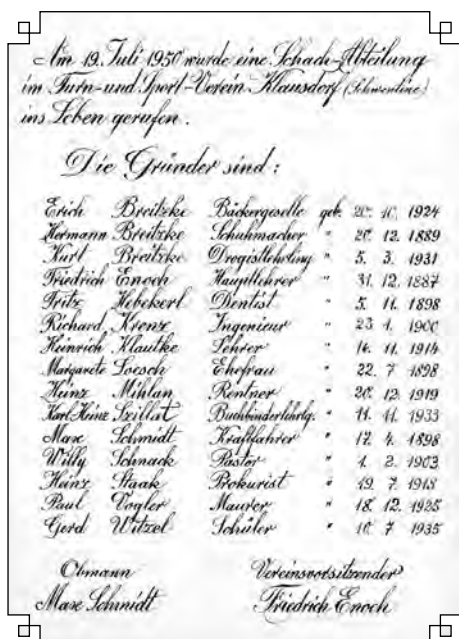 Am 19. Juli 1950 wurde eine Schach-Abteilung
im Turn- und Sport-Verein Klausdorf (Schwentine)
ins Leben gerufen.
Die Gründer sind:
Erich Breitzke Bäckergeselle geb. 20. 10. 1924
Hermann Breitzke Schuhmacher " 20. 12. 1889
Kurt Breitzke Drogistlehrling " 5. 3. 1931
Friedrich Enoch Hauptlehrer " 31. 12. 1887
Fritz Hebekerl Dentist " 5. 11. 1898
Richard Krenz Ingenieur " 23 1. 1900
Heinrich Klautke Lehrer " 14. 11. 1914
Margarete Loesch Ehefrau " 22. 7 1898
Heinz Mihlan Rentner " 20. 12. 1919
Karl-Heinz Szillat Buchbinderlehrlg. " 11. 11. 1933
Max Schmidt Kraftfahrer " 17. 4. 1898
Willy Schnack Pastor " 1. 2. 1903
Heinz Staak Prokurist " 19. 7. 1918
Paul Vogler Maurer " 18. 12. 1925
Gerd Witzel Schüler " 10. 7 1935
Obmann Vereinsvorsitzender
Max Schmidt Friedrich Enoch